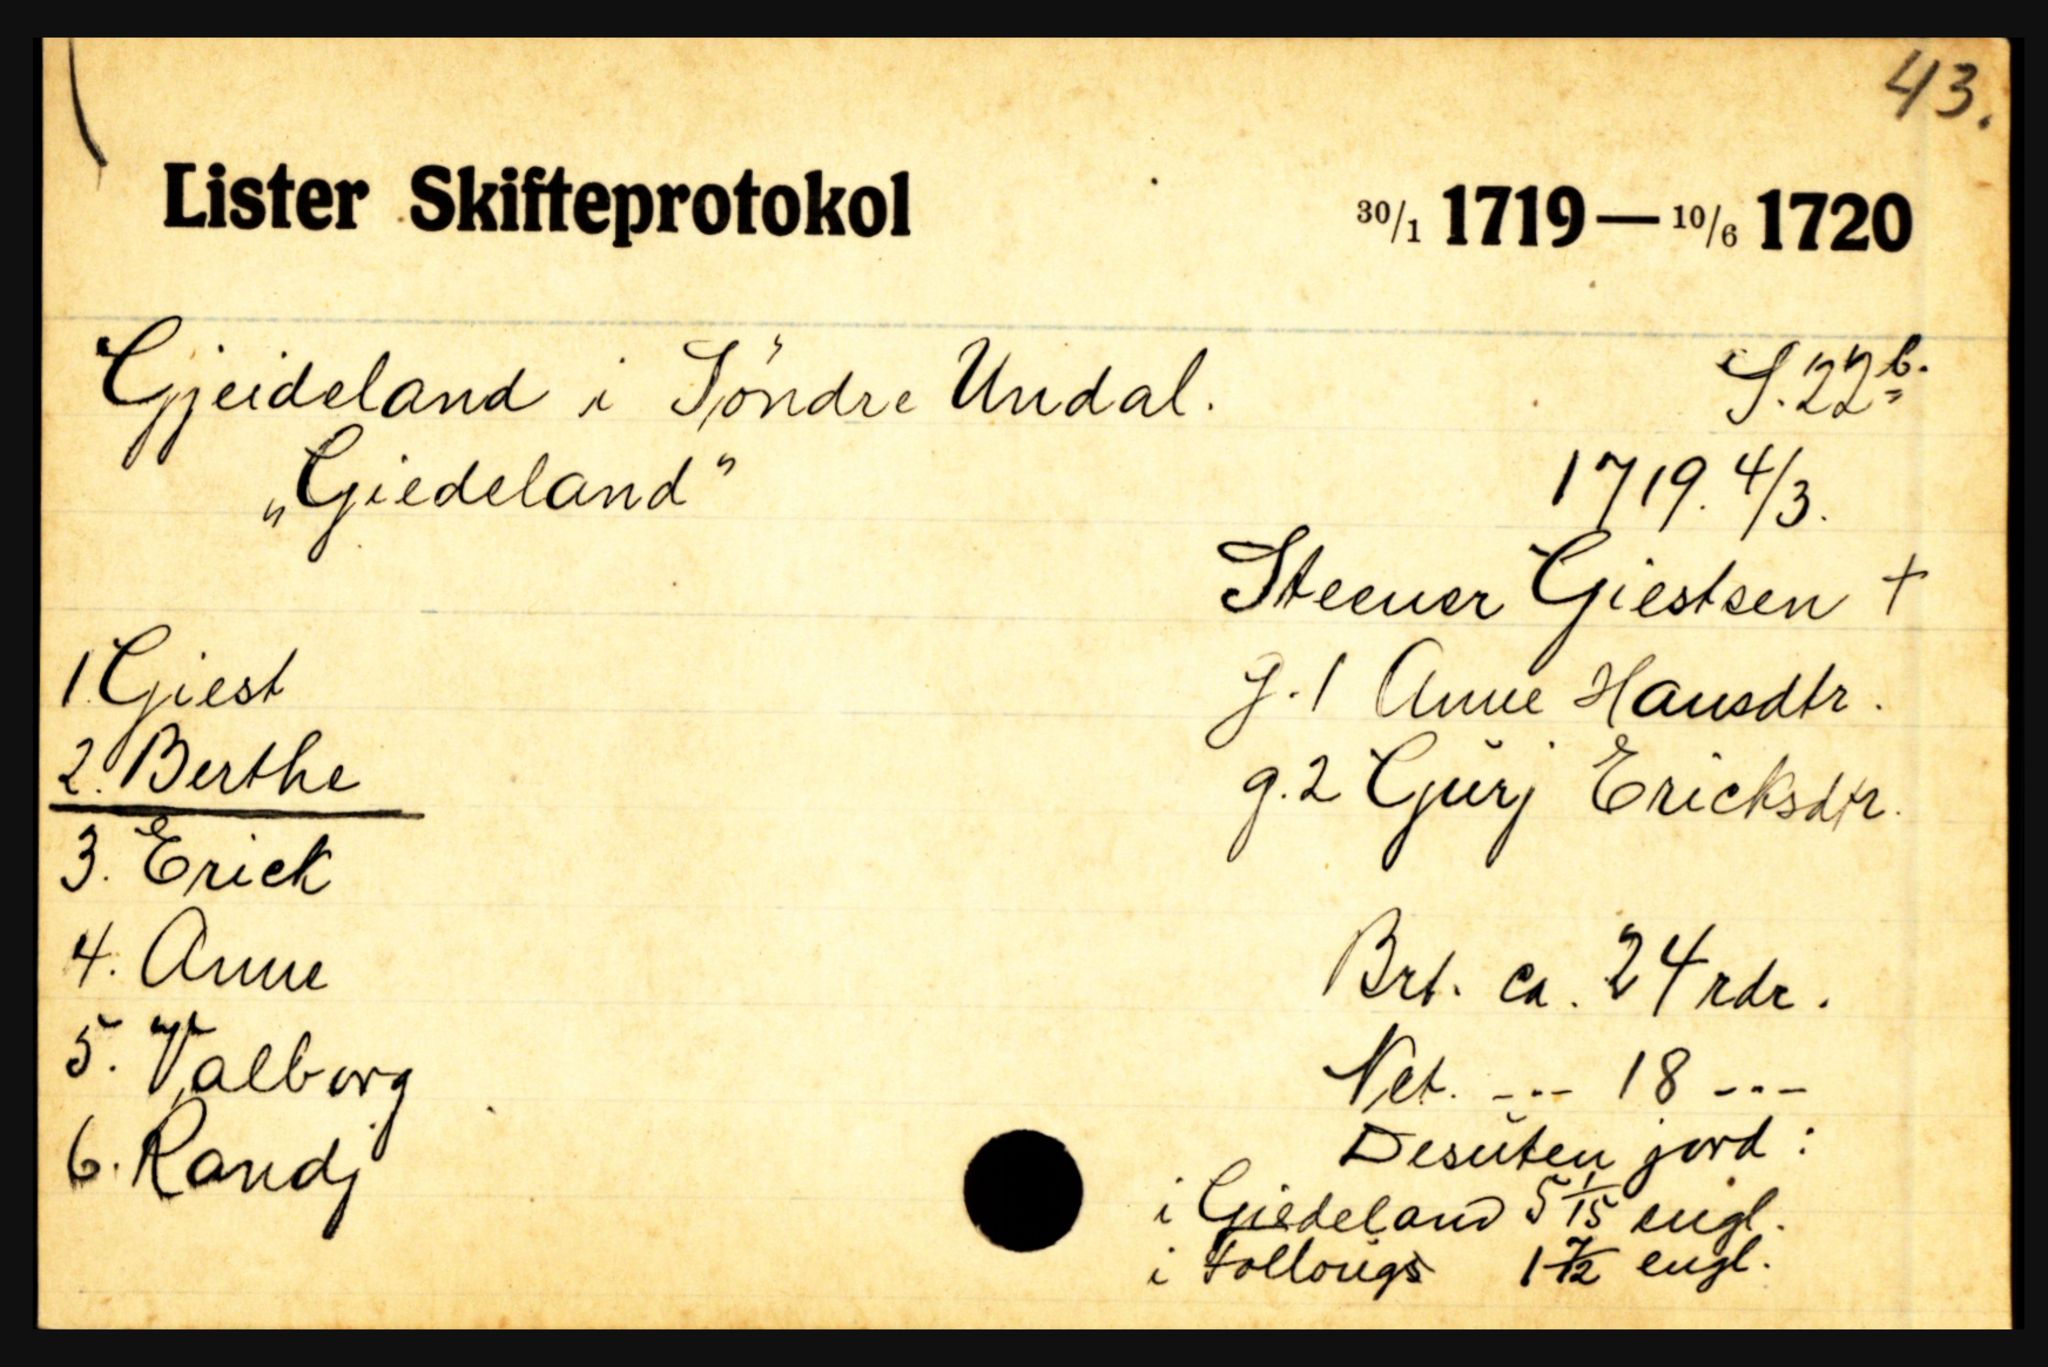 43.
Lister Skifteprotokol 30/1 1719 — 10/6 1720
Gjeideland i Söndre Undal. S. 22b.
„Giedeland” 1719. 4/3.
Steener Giestsen +
1. Giest g. 1 Anne Hansdtr.
2. Berthe g. 2 Gurj Ericksdtr.
3. Erick
4. Anne Brt. ca. 24 rdr.
5. Valborg Net. --- 18 ---
Desuten jord:
6. Randj
i Giedeland 5 1/15 engl.
i 1 7/12 engl.